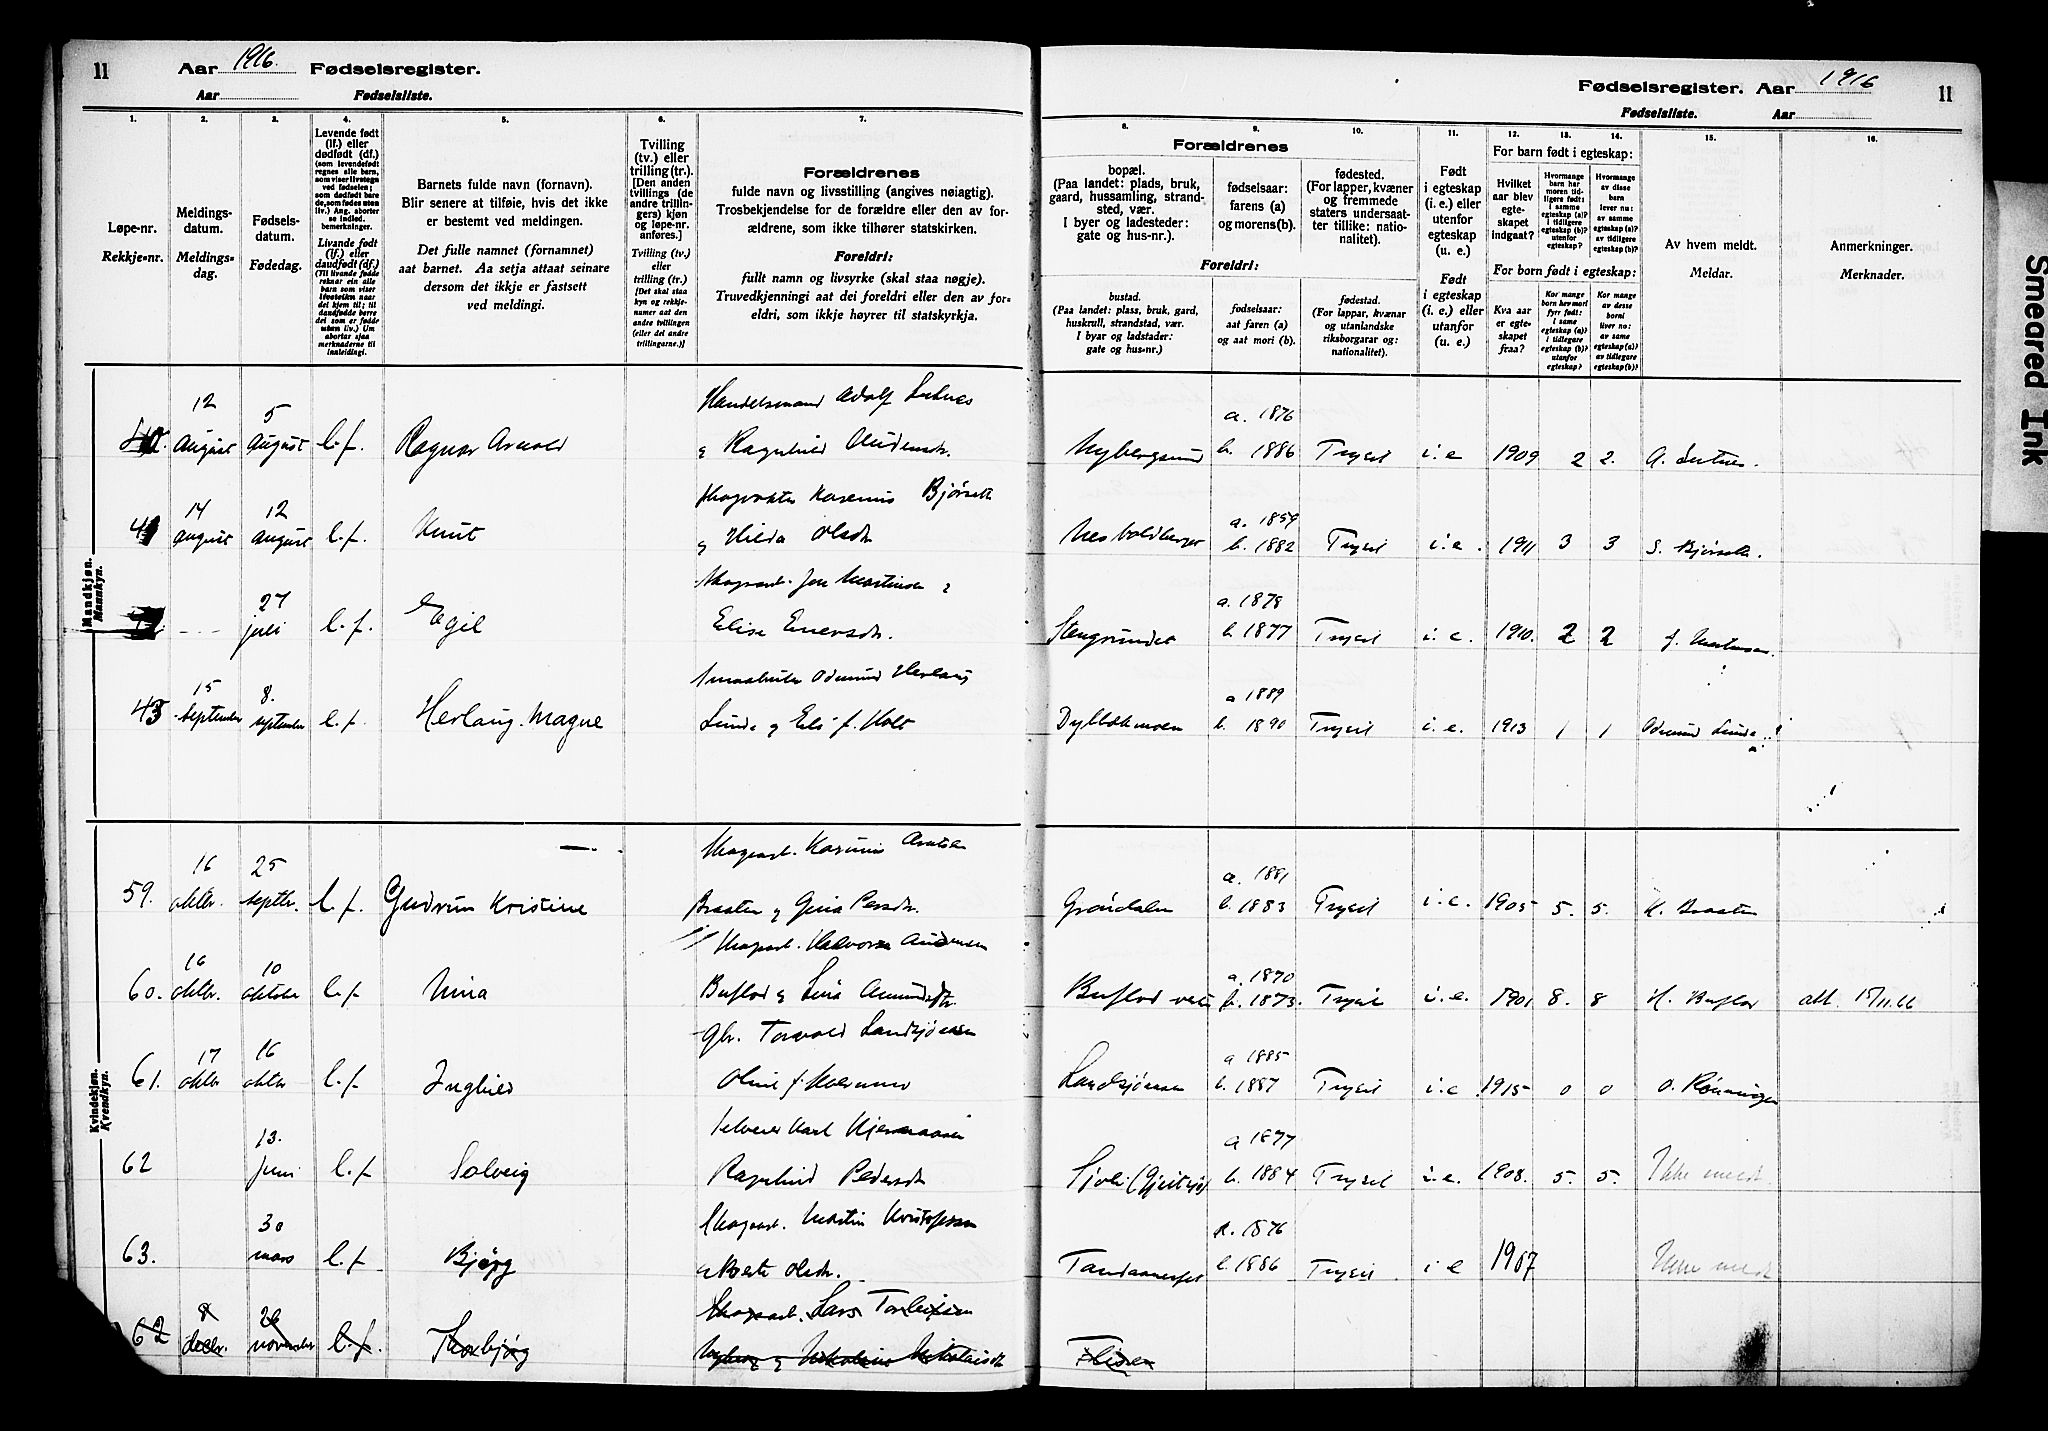 11
Aar 1916. Fødselsregister.
Aar Fødselsliste.
Fødselsregister. Aar 1916
11
Fødselsliste. Aar
1. 2. 3. 4. 5. 6. 7.
8. 9. 10. 11. 12. 13. 14. 15. 16.
Løpe-nr.
Rekkje-nr.
Meldings-
datum.
Meldings-
dag.
Fødsels-
datum.
Fødedag.
Levende født
(lf.) eller
dødfødt (df.)
(som levendefødt
regnes alle barn,
som viser livstegn
ved fødselen;
som dødfødt bare
de, som fødes uten
liv.) Ang. aborter
se indled.
bemerkninger.
Livande født
(lf.) eller
daudfødt (df.)
(Til livande fødde
reknar ein alle
barn som viser
livsteikn naar
dei kjem til; til
daudfødde berre
dei som er fødde
utan liv.) Um
abortar sjaa
merknaderne til
innleidingi.
Barnets fulde navn (fornavn).
Blir senere at tilføie, hvis det ikke
er bestemt ved meldingen.
Det fulle namnet (fornamnet)
aat barnet. Aa setja attaat seinare
dersom det ikkje er fastsett
ved meldingi.
Tvilling
(tv.) eller
trilling (tr.).
[Den anden
tvillings (de
andre trillin-
gers) kjøn
og løpe-nr.
anføres.]
Tvilling (tv.)
eller
trilling (tr.)
[Det skal staa
kyn og rekkje-
numer aat den
andre tvillingen
(eller dei andre
trillingarne.)]
Forældrenes
fulde navn og livsstilling (angives nøiagtig).
Trosbekjendelse for de forældre eller den av for-
ældrene, som ikke tilhører statskirken.
Foreldri:
fullt namn og livsyrke (skal staa nøgje).
Truvedkjenningi aat dei foreldri eller den av for-
eldri, som ikkje høyrer til statskyrkja.
Forældrenes
bopæl.
(Paa landet: plads, bruk,
gaard, hussamling, strand-
sted, vær.
I byer og ladesteder:
gate og hus-nr.).
fødselsaar:
farens (a)
og morens(b).
fødested.
(For lapper, kvæner
og fremmede
staters undersaat-
ter tillike: natio-
nalitet).
Foreldri:
bustad.
(Paa landet: plass, bruk, gard,
huskrull, strandstad, vær.
I byar og ladstader:
gate og hus-nr.)
fødselsaar:
aat faren (a)
og aat mori (b).
fødestad.
(For lappar, kvænar
og utanlandske
riksborgarar og:
nationalitet).
Født
i egteskap
(i. e.) eller
utenfor
egteskap
(u. e.)
Født
i egteskap
(i. e.) eller
utanfor
(u. e.)
For barn født i egteskap:
Hvilket
aar blev
egte-
skapet
indgaat?
Hvormange
barn har
moren tid-
ligere født:
i samme
egteskap (a)?
i tidligere
egteskap (b)?
utenfor
egteskap?
Hvormange
av disse
barn
lever nu:
av samme
egteskap (a)?
av tidligere
egteskap (b)?
For born født i egteskap:
Kva aar
er egte-
skapet
fraa?
Kor mange
born hev mori
fyrr født:
i same
egteskap (a)?
i tidlegare
egteskap (b)?
utanfor
egteskap?
Kor mange
av desse
borni
liver no:
av same
egteskap (a)?
av tidlegare
egteskap (b)?
Av hvem meldt.
Meldar.
Anmerkninger.
Merknader.
Mandkjøn.
Mannkyn.
12 august 5 august l. f. Ragnar Arnold Handelsmand Adolf
& Ragnhild Nybergsund a. 1876 b. 1886 Trysil i. e 1909 2 2. A.
41 14 august 12 august l. f. Knut Bjørseth
& Hilda Olsdtr a. 1859 b. 1882 Trysil i. e. 1911 3 3 S. Bjørseth.
27 juli l. f. Egil Martinsen &
Elise Stengrundet a. 1878 b. 1877 Trysil i. e. 1910. 2 2 J. Martinsen.
43 15 september 8. september l. f. Herlaug. Magne Odmund Herlaug
Lunde & Holt a 1889 b. 1890 Trysil i. e. 1913 1 1 Odmund Lunde
Kvindekjøn.
Kvendkyn.
59. 16 oktbr. 25 septbr. l. f. Gudrun Kristine
Braaten & Persdtr. Grøndalen a. 1881 b. 1883 Trysil i. e. 1905 5. 5. K. Braaten
60. 16 oktbr. 10 oktober l. f. Nina Skogsarb. Halvor
Buflod & Buflod a. 1870 b. 1873. Trysil i. e. 1901 8. 8 H. Buflod att. 15/11.66
61. 17 oktbr 16 oktbr l. f. Inghild Gbr. Torvald
Oline a 1885 b. 1887 Trysil i. e 1915 0 0 O. Rønningen
62 13. juni l. f. Solveig Karl
Ragnhild Pedersdtr a 1877 b. 1884 Trysil i. e. 1908. 5. 5. Ikke meldt.
63. 30 mars l. f. Bjørg Skogsarb. Martin Kristofersen
Olsdtr. a. 1876 b. 1886 Trysil i e 1907 Ikke meldt
62 8 decbr. 26 november l. f. Thorbjørg Skogsarb. Lars Torleifsen
Nyberg & Flisen
Smeared Ink